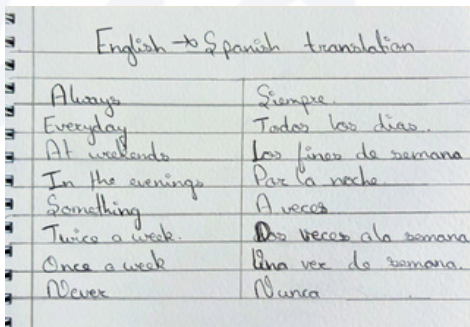 English → Spanish translation
Always Siempre.
Everyday Todos los días.
At weekends Los fines de semana
In the evenings Por la noche.
Something A veces
Twice a week. Dos veces ala semana
Once a week Una vez do semana.
Never Nunca